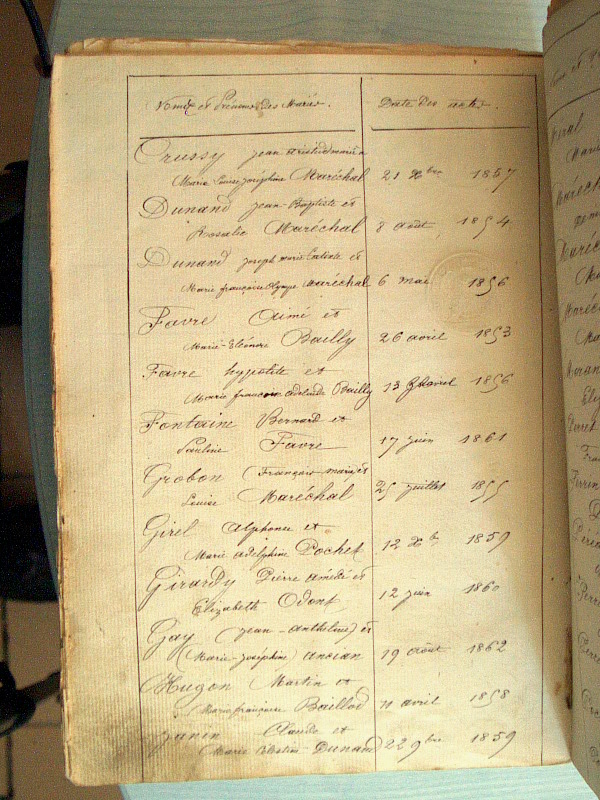 Noms et Prénoms des Mariés. Date des actes.
Crussy jean
Marie Louise joséphine Maréchal 21 Xbre 1857
Dunand jean-Baptiste et
Rosalie Maréchal 8 août 1854
Dunand joseph marie et
Marie françoise Olympe maréchal 6 mai 1856
Favre Aimé et
Marie-Eléonore Bailly 26 avril 1853
Favre hypolite et
Marie adelaïde Bailly 13 avril 1856
Fontaine Bernard et
Pauline Favre 17 juin 1861
Grobon (François marie) et
Louise Maréchal 25 juillet 1855
Girel alphonse et
Marie adelphine Pochet 12 Xb 1859
Girardy Pierre amédé et
Elizabeth Odont 12 juin 1860
Gay (jean-anthelme) et
(Marie-joséphine) ancian 19 août 1862
Hugon Martin et
Marie françoise Baillod 11 avril 1858
janin Claude et
Marie Dunand 22 9bre 1859